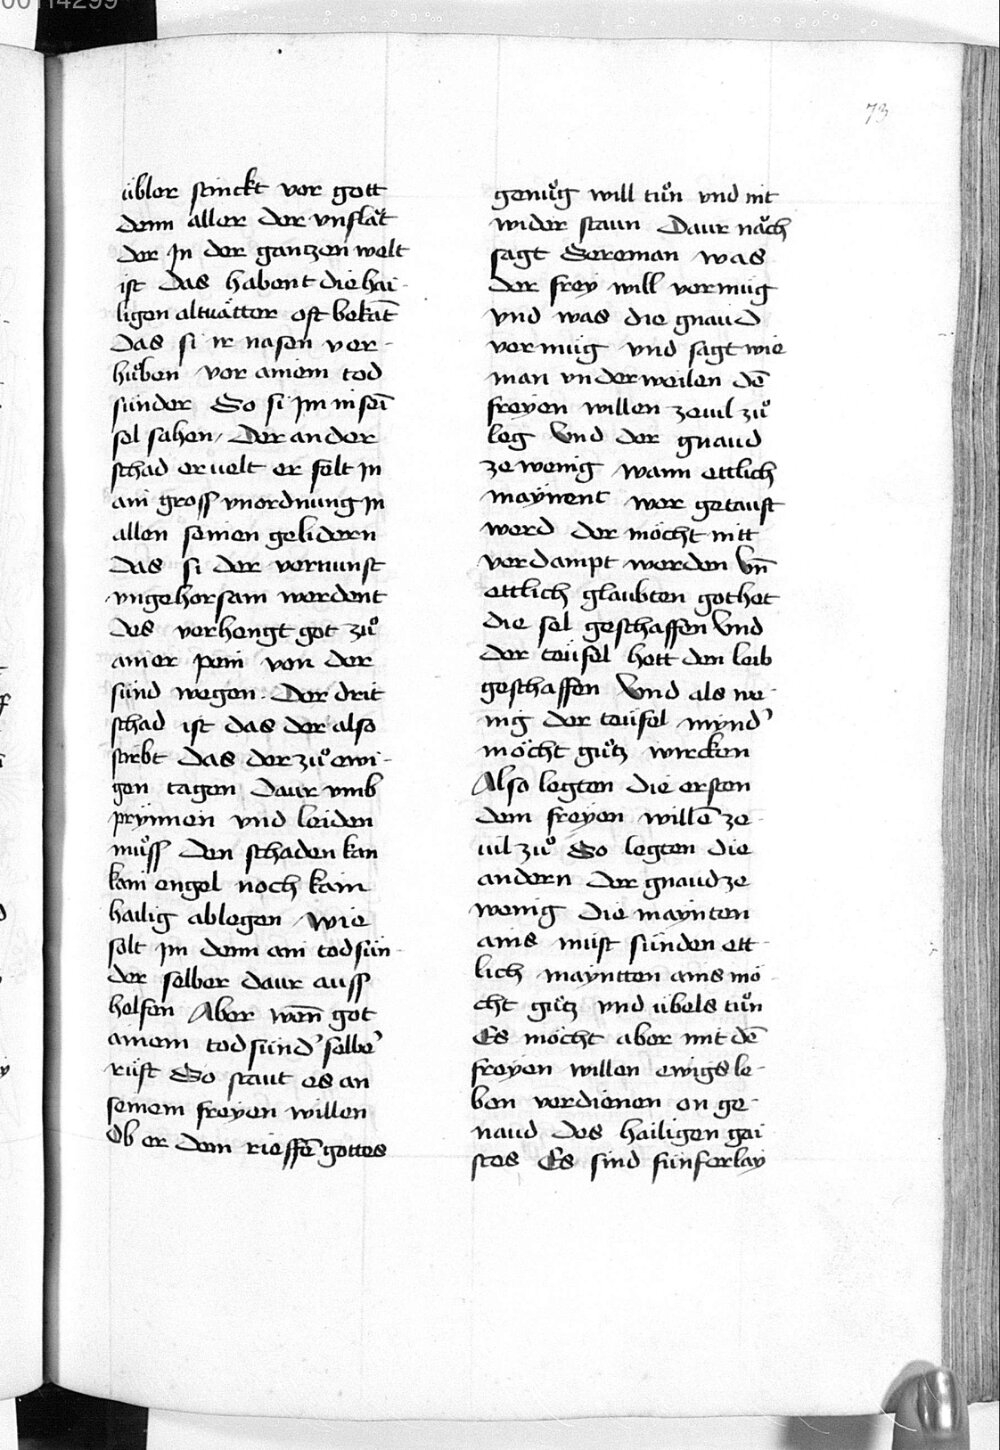 73
übler stinckt vor gott
denn aller der vnflǎt
der Jn der gantzen welt
ist das habent die hai-
ligen altuätter oft bekāt
das si ir nasen ver-
hůben vor ainem tod
sünder So si Jm in sei̅
sel sahen / Der ander
schad er uelt er felt Jn
ain gross vnordnung Jn
allen seinen gelidern
das si der vernunft
vngehorsam werdent
des verhengt got zů
ainer pein von der
sünd wegen . Der drit
schad ist das der also
stirbt das der zů ewi-
gen tagen daur vmb
prynnen vnd leiden
můss den schaden kan
kain engel noch kain
hailig ablegen wie
solt Jm denn ain tod sün-
der selber daur auss
helfen Aber wen̅ got
ainem tod sünd' selbe'
rüft So staut es an
seinem freyen willen
Ob er dem rieffe̅ gottes
genůg will tůn vnd nit
wider staun Daur nǎch
sagt Gereman was
der frey will vermüg
vnd was die gnaud
vermüg vnd sagt wie
man vnderweilen de̅
freyen willen zeuil zů
leg Vnd der gnaud
ze wenig wann ettlich
maynent wer getauft
werd der möcht nitt
verdampt werden Vn̅
ettlich glaubten got het
die sel geschaffen Vnd
der teüfel hett den leib
geschaffen Vnd als we-
nig der teüfel mynd'
möcht gůtz wircken
Also legten die ersten
dem freyen wille̅ ze-
uil zů So legten die
andern der gnaud ze
wenig Die maynten
ains müst sünden ett-
lich maynten ains mö-
cht gůtz vnd übels tůn
Es möcht aber mit de̅
freyen willen ewigs le-
ben verdienen on ge-
naud des hailigen gai-
stes Es sind fünferlay